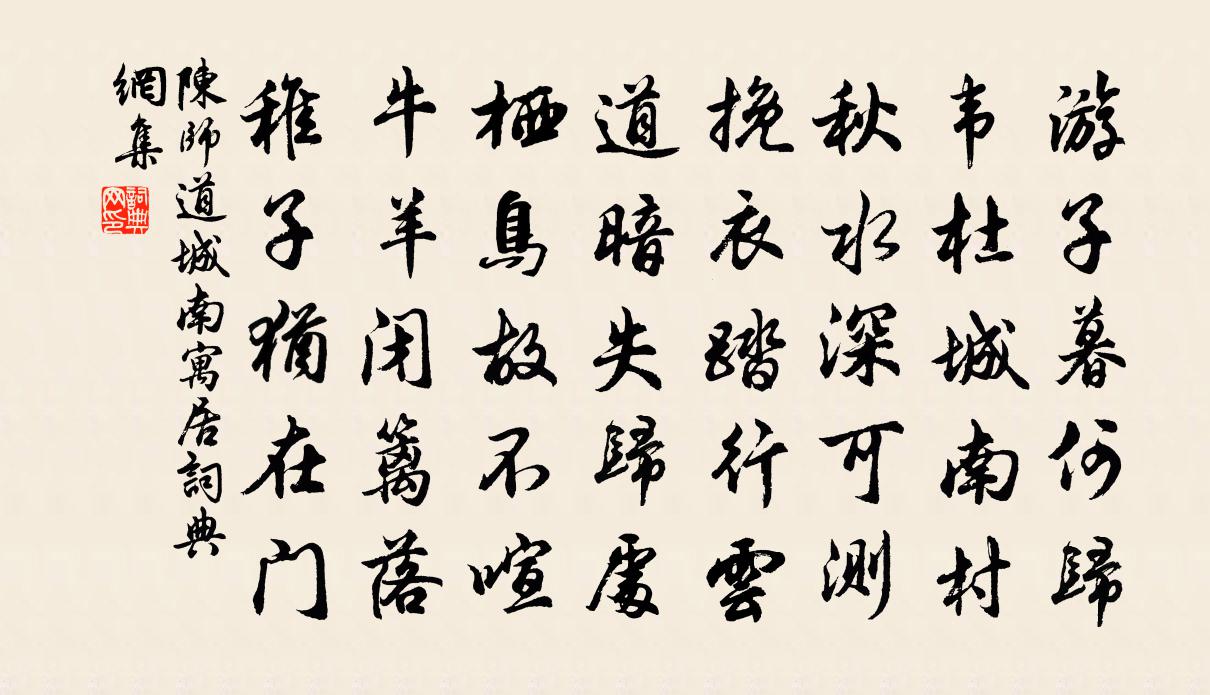 游子暮何歸
韦杜城南村
秋水深可測
挽衣踏行雲
道暗失歸處
栖鳥故不喧
牛羊闭篱落
稚子猶在门
陳師道城南寓居詞典
網集
詞典
网印